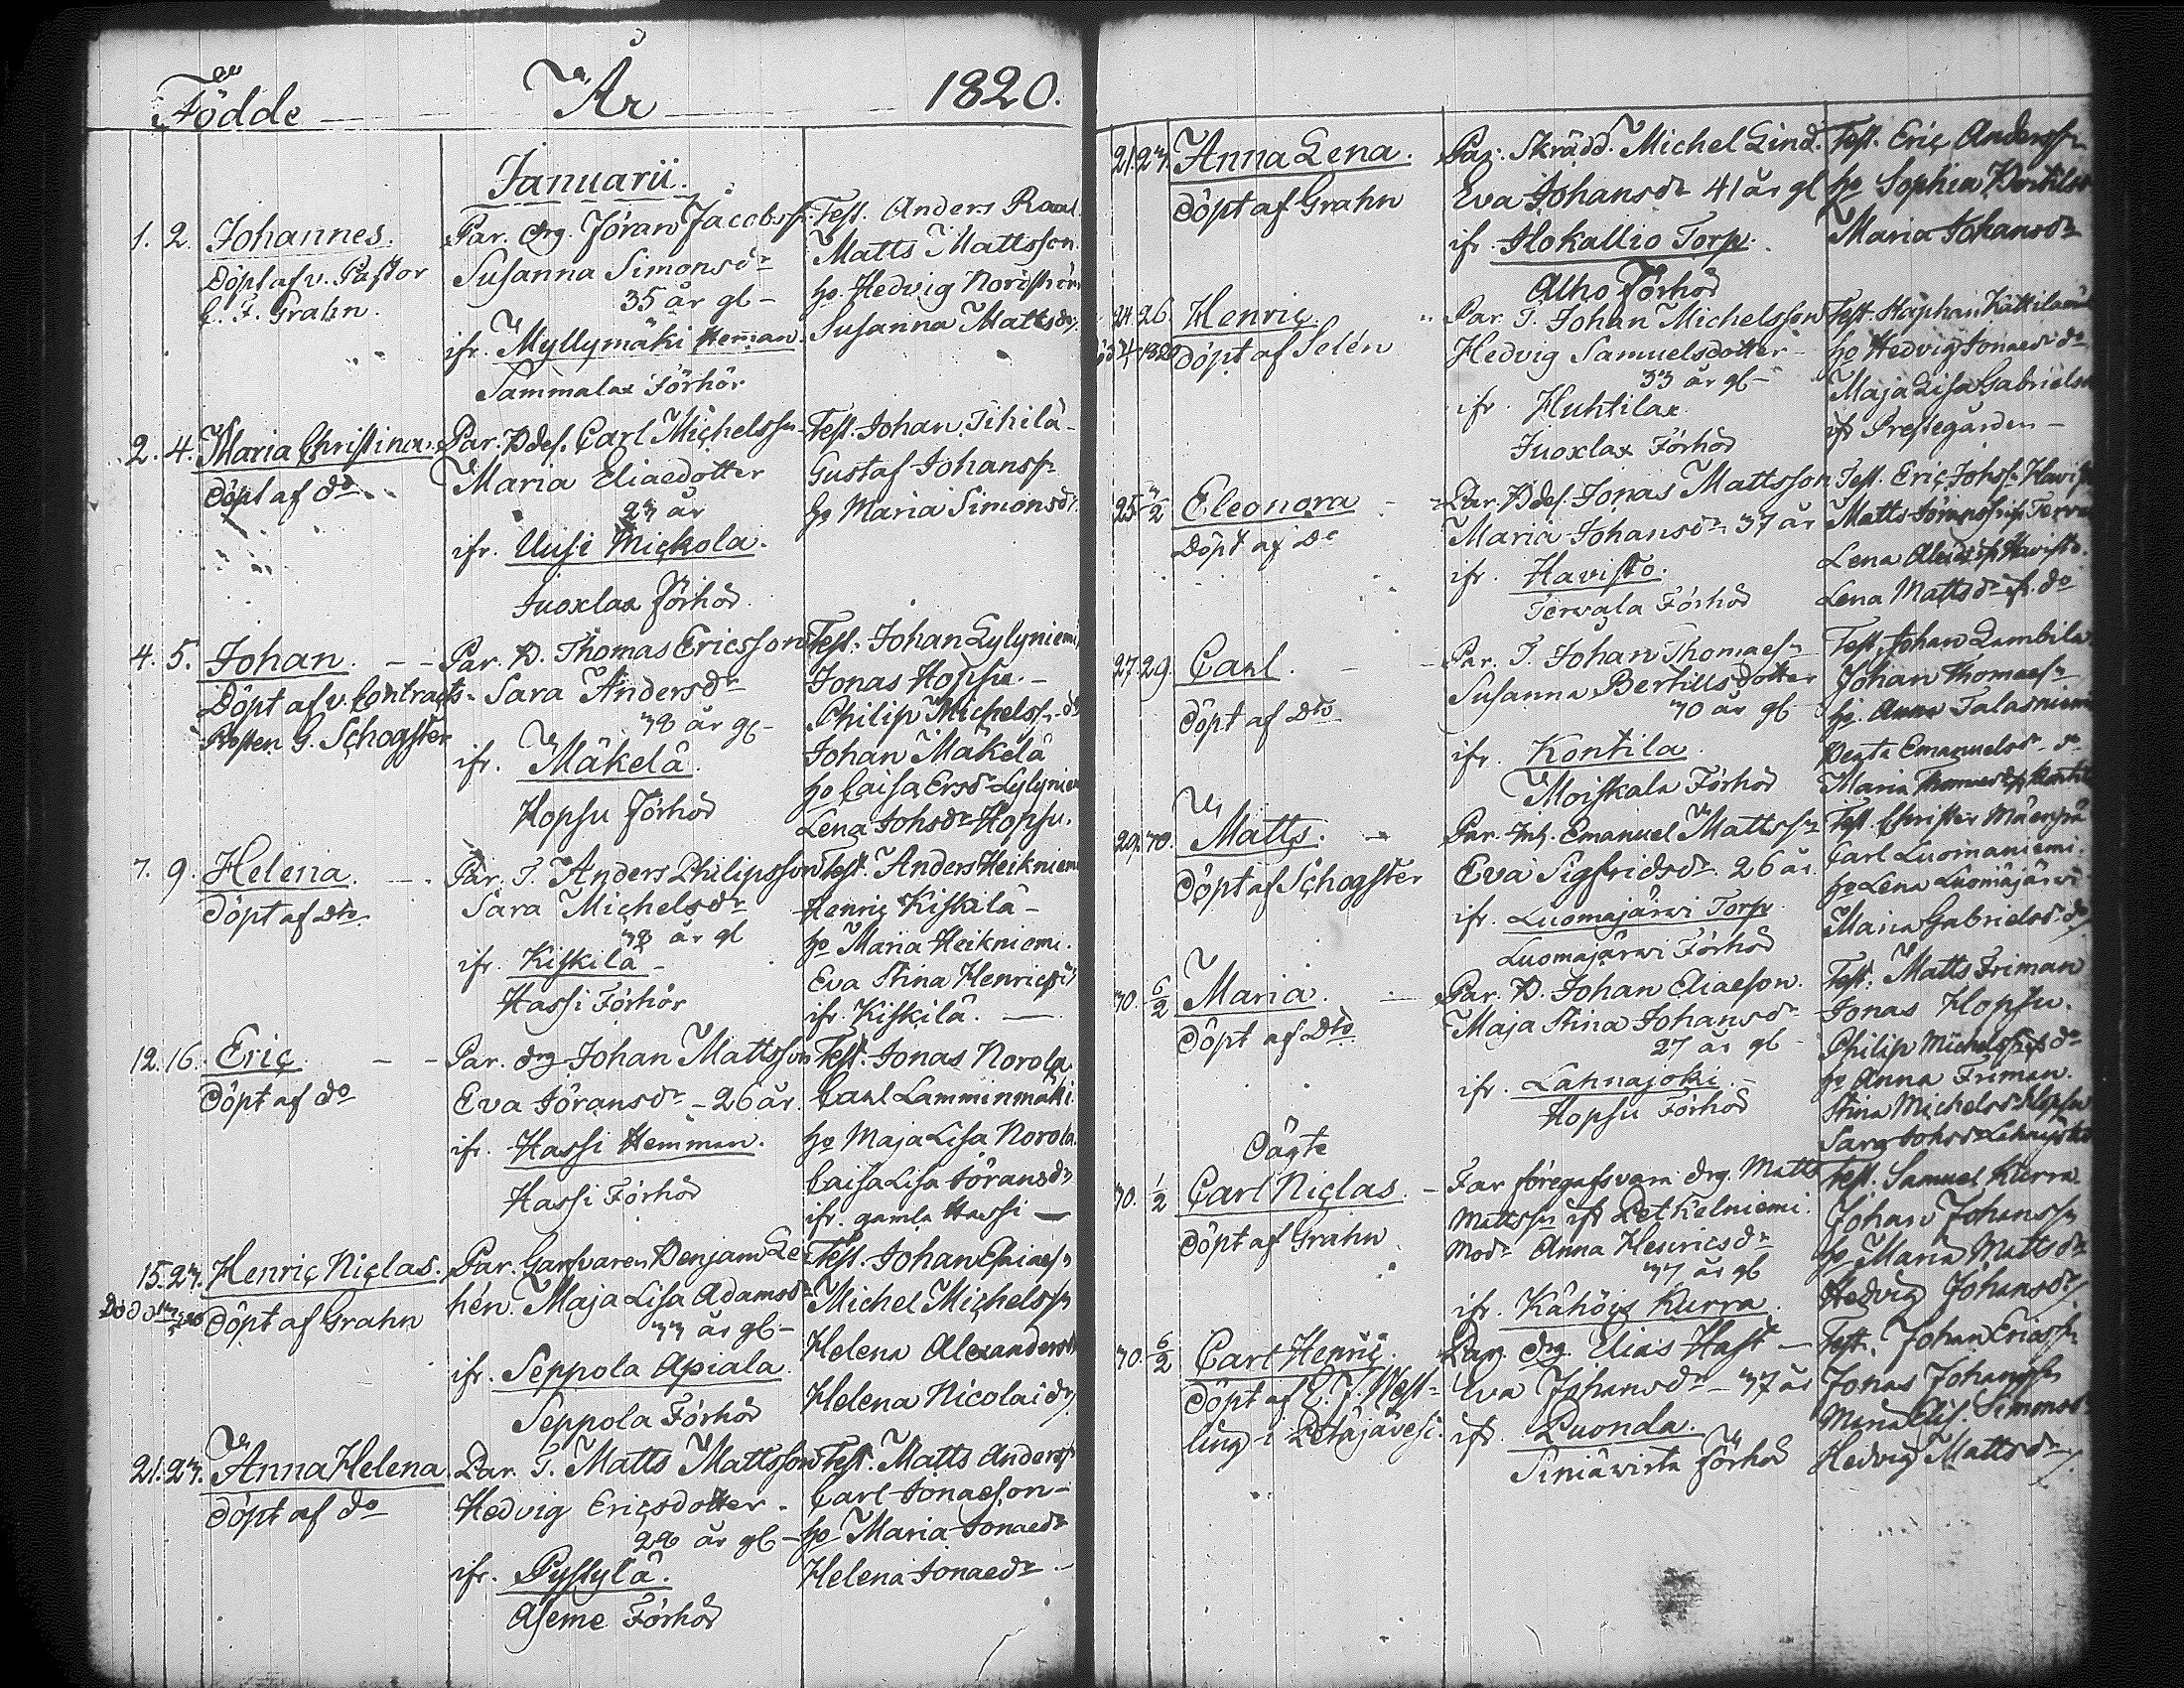 Födde År 1820.
Januarii.
1. 2. Johannes.
Döpt af v. Pastor
G. F. Grahn.
Par. drg. Jöran Jacobss:
Susanna Simonsdr
35 år gl -
ifr. Myllymäki Heman.
Sammalax Förhör
Test. Anders
Matts Mattsson
ho. Hedvig
Susanna Mattsdr
2. 4. Maria Christina.
Döpt af do
Par. Bdes. Carl Michelssn
Maria Eliaedotter
23 år
ifr. Uusi Mickola.
Juoxlax förhör.
Test. Johan Tihilä -
Gustaf Johanssn
ho Maria Simonsdr
4. 5. Johan.
Döpt af v. Contracts-
Prosten G. Schogster
Par. B. Thomas Ericsson
Sara Andersdr
38 år gl -
ifr. Mäkelä.
Hopsu förhör
Test. Johan Lylyniemi
Jonas Hopsu. -
Philip Michelssn do
Johan Mäkelä
ho Caisa Ersdr Lylyniem
Lena Johsdr Hopsu.
7. 9. Helena.
Döpt af Dto
Par. T. Anders Philipsson
Sara Michelsdr
38 år gl
ifr. Kiskilä -
Hassi Förhör
Test. Anders Heikniemi
Henric Kiskilä -
ho Maria Heikniemi.
Eva Stina Henricsdr
ifr. Kiskilä.
12. 16. Eric
Döpt af do
Par. drg Johan Mattsson
Eva Jöransdr - 26 år.
ifr. Hassi Hemman.
Hassi Förhör
Test. Jonas Norola
Carl Lamminmäki.
ho Maja Lisa Norola.
Caisa Lisa Jöransdr
ifr. gamla Hassi
15. 23. Henric Niclas.
Döpt af Grahn
Par. Garfvaren Benjam Le-
hén. Maja Lisa Adamsdr
33 år gl -
ifr. Seppola Apiala
Seppola Förhör
Test. Johan Eliaesn
Michel Michelssn
Helena Alexandersdr
Helena Nicolaidr
21. 23. Anna Helena
Döpt af do
Par. T. Matts Mattsson
Hedvig Ericsdotter -
28 år gl -
ifr. Pyslylä.
Aseme Förhör
Test. Matts Anderss
Carl Jonaeson -
ho Maria Jonaedr
Helena Jonaedr -
21. 23. Anna Lena.
Döpt af Grahn
Par. Skrädd. Michel Lind.
Eva Johansdr 41 år gl
ifr. Ilokallio Torp.
Alho Förhör
Test. Eric Anderssn
ho Sophia Bertilsd
Maria Johansdr
24. 26. Henric.
Döpt af Selén
Par. T. Johan Michelsson
Hedvig Samuelsdotter -
33 år gl -
ifr. Huhtilax.
Juoxlax Förhör
Test. Staphan
ho Hedvig Jonaedr do
Maja Lisa Gabrielsd
ifr Prestegården -
25. 1/2 Eleonora
Döpt af Do
Par. Bdes. Jonas Mattsson
Maria Johansdr 37 år
ifr. Havisto.
Tervala Förhör
Test. Eric Johss. Havist
Matts
Lena
Lena Mattsdr ifr. do
27. 29. Carl.
Döpt af Dto
Par. T. Johan Thomaesn
Susanna Bertilsdotter
30 år gl
ifr. Kontila.
Moiskala Förhör
Test. Johan Lambila
Johan Thomaesn
ho. Anna Talasniemi
Beata Emanuelsdr do
Maria
29. 30. Matts.
Döpt af Schogster
Par. Inh. Emanuel Mattssn
Eva Sigfridsdr 26 år.
ifr. Luomajärwi Torp
Luomajärwi Förhör
Test. Christer Mäenpää
Carl Luomaniemi.
ho Lena Luomajärwi
Maria Gabrielsdr do
30. 6/2 Maria.
Döpt af Dto
Par. B. Johan Eliaeson.
Maja Stina Johansdr
27 år gl -
ifr. Lahnajoki. -
Hopsu Förhör
Test. Matts Friman
Jonas Hopsu.
Philip Michelss ifr do
ho Anna Friman.
Stina Michelsdr Hopsu
Sara Johsdr
Oägte
30. 1/2 Carl Niclas.
Döpt af Grahn
Far föregifsvara drg. Matts
Mattssn ifr Petkelniemi.
Modr Anna Henricsdr
37 år gl
ifr. Kähöis Kurra.
Test. Samuel Kurra
Johan Johanssn
ho Maria Mattsdr
Hedvig Johansdr
30. 6/2 Carl Henric.
Döpt af E. J. West-
ling i Petäjävesi.
Par. drg. Elias Hast -
Eva Johansdr - 37 år
ifr. Puonda.
Siniäwirta förhör
Test. Johan Eriassn
Jonas Johanssn
Maria Elis. Simonsd
Hedvig Mattsdr